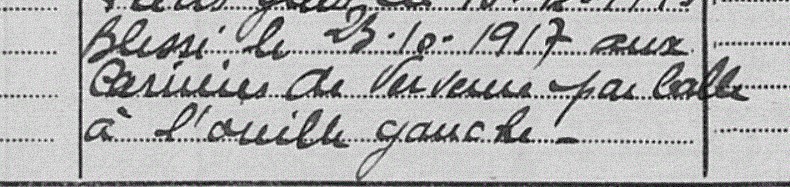 Blessé le 23.10.1917 aux
Carrières de par balle
à l'oreille gauche -